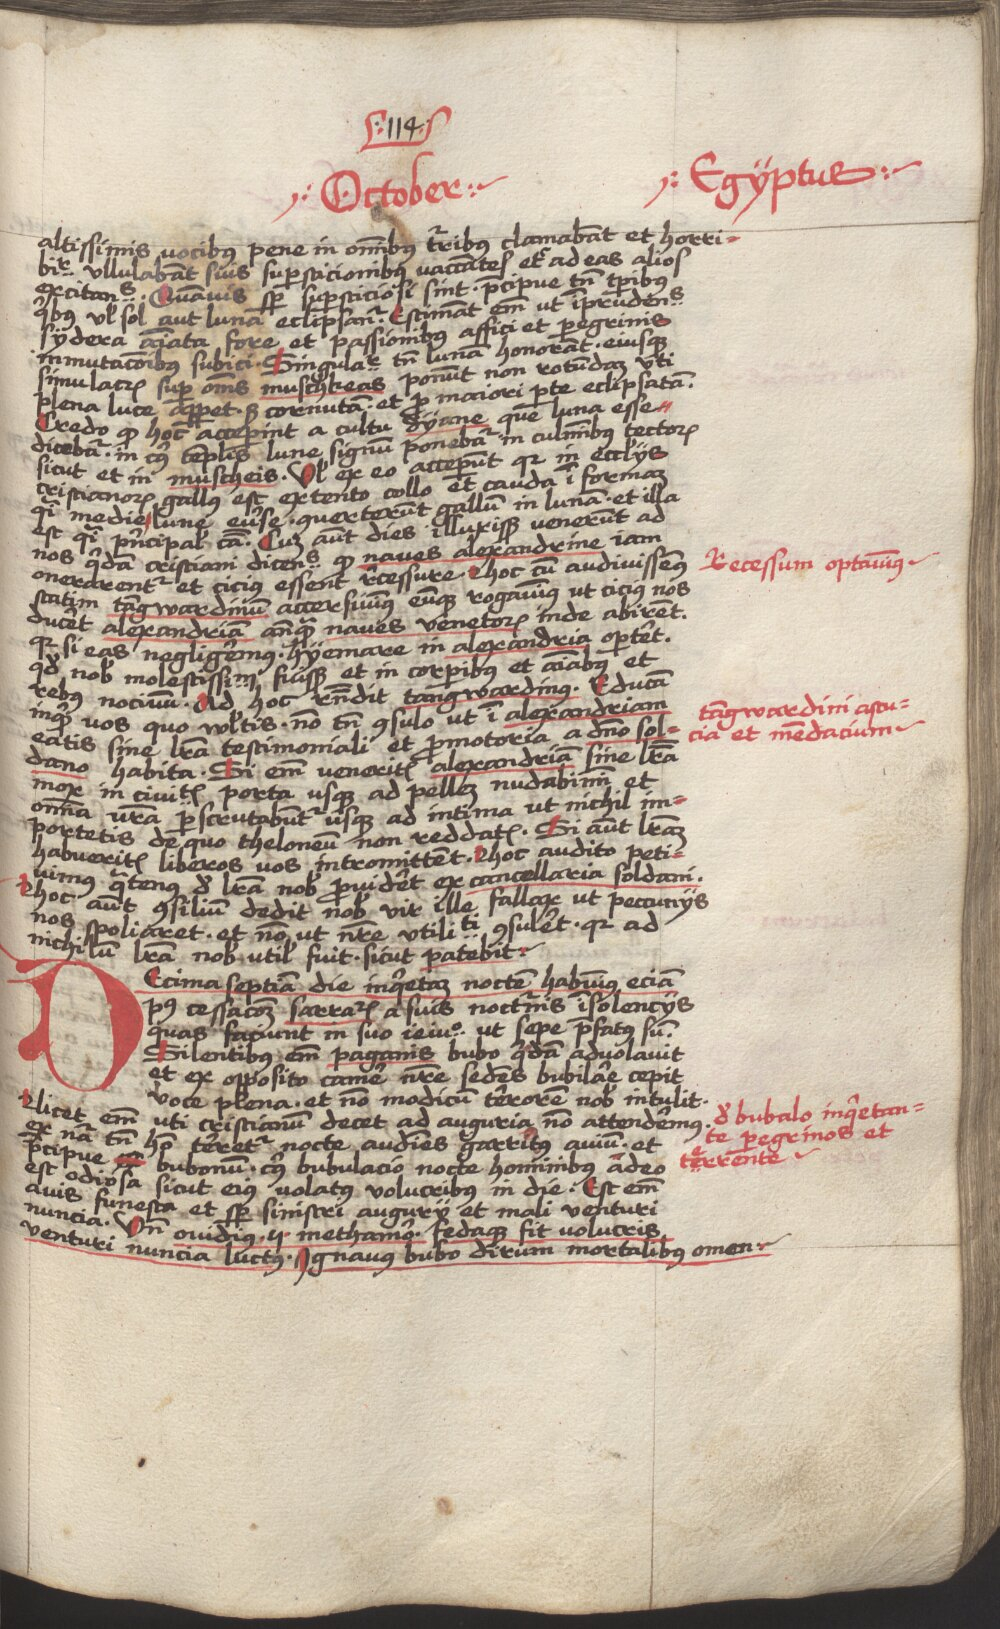 114
October
Egÿptus
altissimis vocibus pene in om̄ibus t'ribus clamabāt et horri=
bir vllulabāt suis suꝑsticionibus vacātes et ad eas alios
excitans. Quāvis sꝑ suꝑsticiosi sint. p̄cipue tn̄ tꝑibus
q̓bus vl̓ sol aut lunā eclipsant'. Estimāt em̄ ut īprudens
sÿdera aīata fore et passionibus affici et ꝑegrinis
inmutacōibus subici. Singular tn̄ lunā honorāt. eiusque
simulacrꝝ suꝑ om̄s muschkeas ponūt non rotundaꝫ vti
plena luce aꝑꝑet. sꝫ cornutā. et ꝓ maiori ꝑte eclipsatā.
Credo ꝙ hoc acceꝑint a cultu dÿane quē luna esse
dicebāt. in cuius tēplis lune signum ponebāt in culmībus tectorꝝ
sicut et in muscheis. Vl̓ ex eo acceꝑūt qꝛ in eccl̓ÿs
cristianorꝝ gallus est extento collo et cauda ī formaꝫ
q̓i medie lune eūse. querterūt gallū in lunā. et illa
est q̓i p̄ncipal̓ cā. Cuꝫ aūt dies illuxisset venerūt ad
nos q̓dā cristiani dicens ꝙ naves alexandrine iam
onerarent' et cicius essent r̄cessure. Hoc cū audivissemus
statim tāgwardinū accersivimus eūque rogavimus ut cicius nos
ducēt alexandriā anq̄ naves venetorꝝ inde abiret.
qꝛ si eas negligēmus. hÿemare in alexandria oꝑtet.
qd̓ nob̓ molestissim̄ fuisset et in corꝑibus et aīabus et
rebus nocivū. Ad hoc rn̄dit tangwardinus. Educā
inquit vos quo vul̓tis. nō tn̄ ꝯsulo ut ī alexandriam
eatis sine lr̄a testimoniali et ꝓmotoria a dn̄o sol=
dano habita. Si em̄ veneritꝭ alexandriā sine lr̄a
mox in civitꝭ porta usque ad pelleꝫ nudabimī. et
om̄ia vr̄a ꝑscrutabūt' usque ad intima ut nichil im=
portetis de quo theloneū non reddatꝭ. Si aūt lr̄aꝫ
habueritꝭ liberos vos intromittēt. Hoc audito peti=
uimus q̄tenus d̓ lr̄a nob̓ ꝓvidēt ex cancellaria soldani.
Hoc aūt ꝯsiliū dedit nob̓ vir ille fallax ut peccunÿs
nos spoliaret. et nō ut nr̄e utilitti ꝯsulēt. qꝛ ad
nichilū lr̄a nob̓ util̓ fuit. sicut patebit.
Decima septīa die inq̓etaꝫ noctē habuimus eciā
pꝰ cessacōeꝫ sarraꝝ a suis noctnis īsolencÿs
quas faciunt in suo ieiuo ut sepe p̄fatus sū.
Silentibus em̄ paganis bubo q̓dā advolavit
et ex opposito camē nr̄e sedens bubilāe cepit
voce plena. et nō modicū t'rorē nob̓ intulit.
Licet em̄ uti cristianū decet ad auguria nō attendēmus.
ex nā tn̄ ho t'ret' nocte audiēs garritus aviū. et
p̄cipue bubonū. cuius bubulacio nocte hominibus adeo
est odiosa sicut eius volatus volucribus in die. Est em̄
avis funesta et sꝑ sinistri augurÿ et mali venturi
nuncia. Vn̄ ovidius. ꝟ methamo. fedaque fit volucris
venturi nuncia luctus. Ignavus bubo dirum mortalibus omen.
Recessum optavimus
tāgwardini astu=
cia et mēdacium
d̓ bubalo inq̓etan=
te ꝑegrinos et
terrente